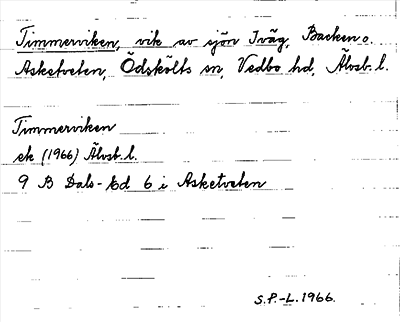 Timmerviken, vik av sjön Iväg, Backen o.
Asketveten, Ödskölts sn, Vedbo hd, Älvsb. l.
Timmerviken
ek (1966) Älvsb. l.
9 B Dals-Ed 6 i Asketveten
S.P.-L. 1966.